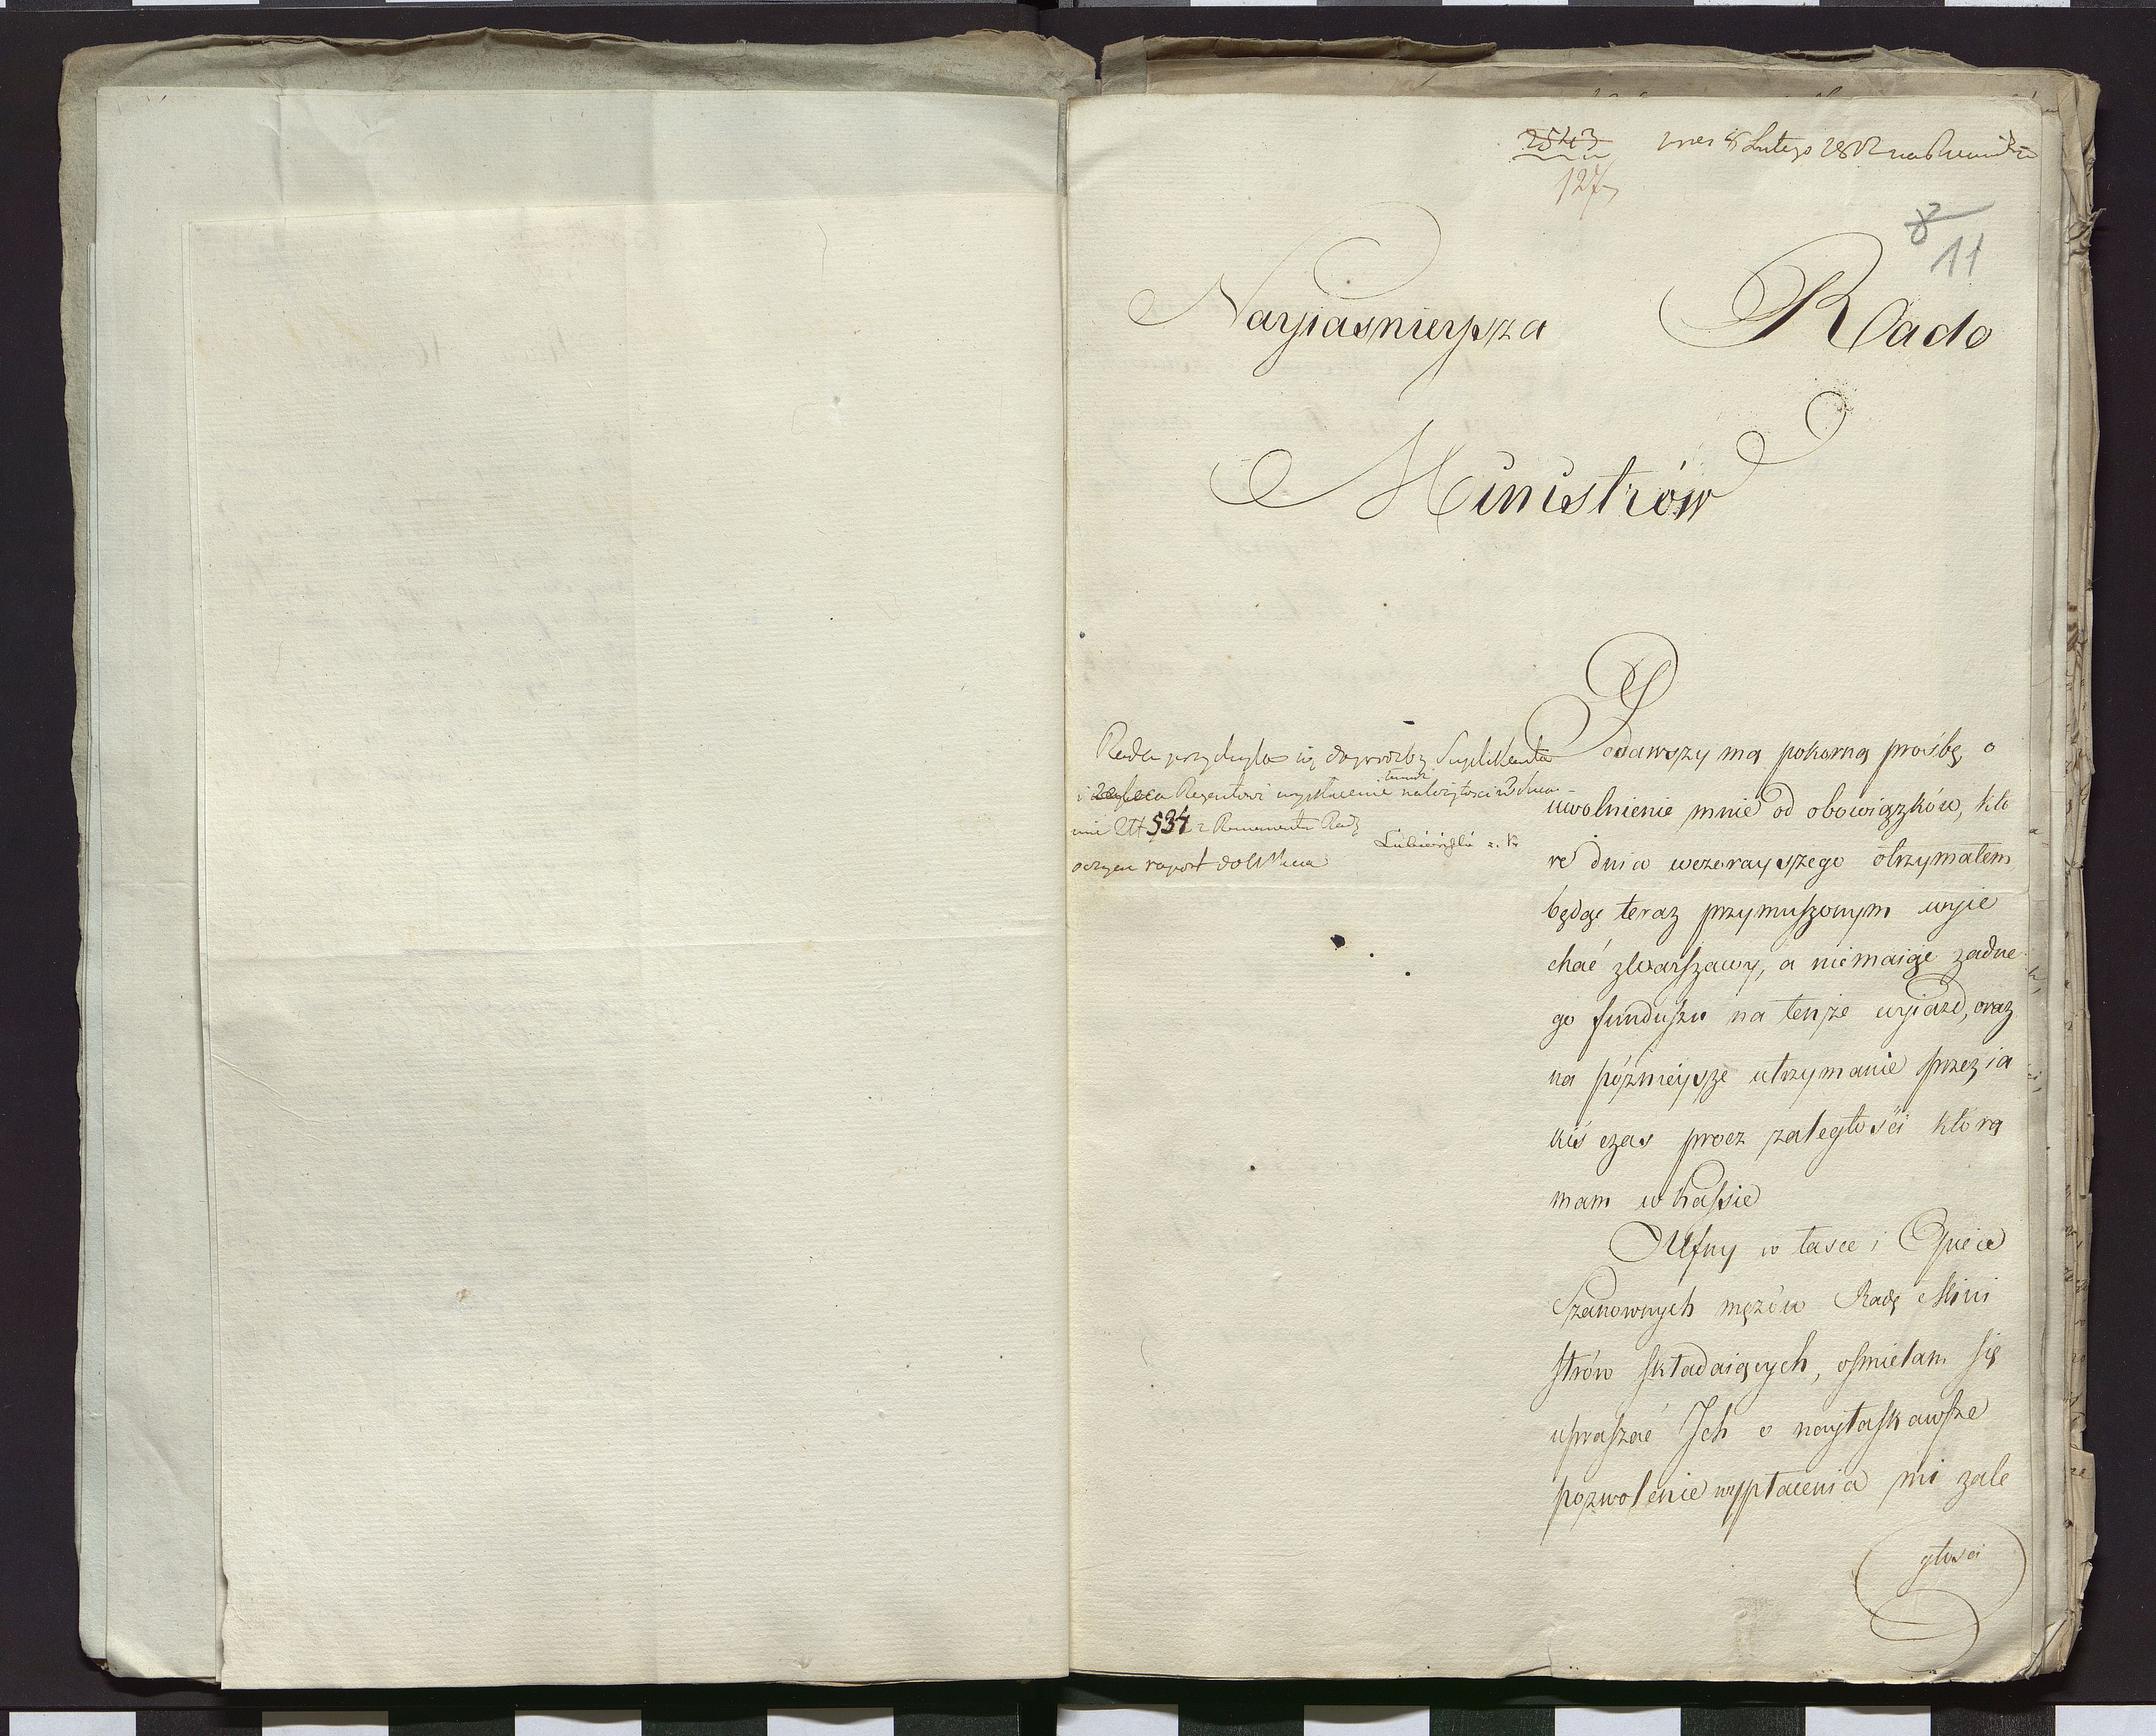 2543
127
8 Lutego
8
11
Nayiasnieysza Rado
Ministrów
Rada przychyla się do prozby Suplikanta
i zaleca Regentowi wypłacenie temuż należytości w Sum-
mie Rtt 534 z Remanentu Rady
o czym raport do
Lubieński
Podawszy mą pokorną prośbę o
uwolnienie mnie od obowiązków, któ
re dnia wczorayszego otrzymałem,
będąc teraz przymuszonym wyie
chać z Warszawy, a niemaiąc żadne
go funduszu na tenże wyiazd, oraz
na późnieysze utrzymanie przez ia
kiś czas procz zaległości którą
mam w kassie
Ufny w łasce i Opiece
Szanownych mężów Radę Mini
strów składaiących, ośmielam się
upraszać Ich o nayłaskawsze
pozwolenie wypłacenia mi zale
głości